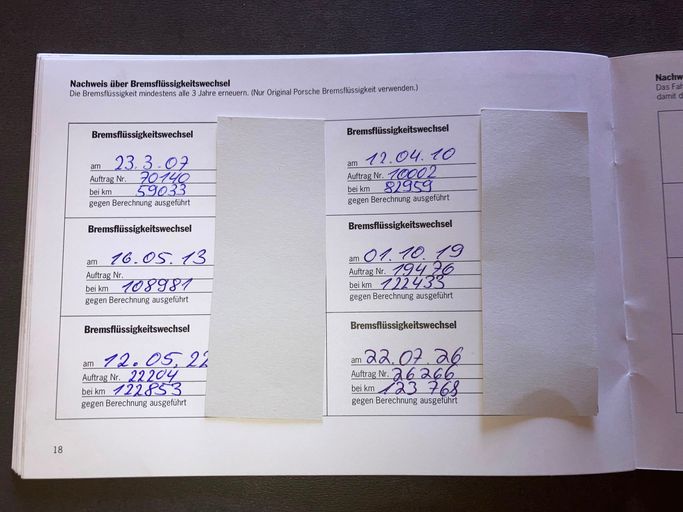 Nachweis über Bremsflüssigkeitswechsel
Die Bremsflüssigkeit mindestens alle 3 Jahre erneuern. (Nur Original Porsche Bremsflüssigkeit verwenden.)
Bremsflüssigkeitswechsel
am 23.3.07
Auftrag Nr. 70140
bei km 59033
gegen Berechnung ausgeführt
Bremsflüssigkeitswechsel
am 12.04.10
Auftrag Nr. 10002
bei km 82959
gegen Berechnung ausgeführt
Bremsflüssigkeitswechsel
am 16.05.13
Auftrag Nr.
bei km 108981
gegen Berechnung ausgeführt
Bremsflüssigkeitswechsel
am 01.10.19
Auftrag Nr. 19476
bei km 122433
gegen Berechnung ausgeführt
Bremsflüssigkeitswechsel
am 12.05.22
Auftrag Nr. 22204
bei km 122853
gegen Berechnung ausgeführt
Bremsflüssigkeitswechsel
am 22.07.26
Auftrag Nr. 26266
bei km 123768
gegen Berechnung ausgeführt
18
Nachw
Das Fah
damit d